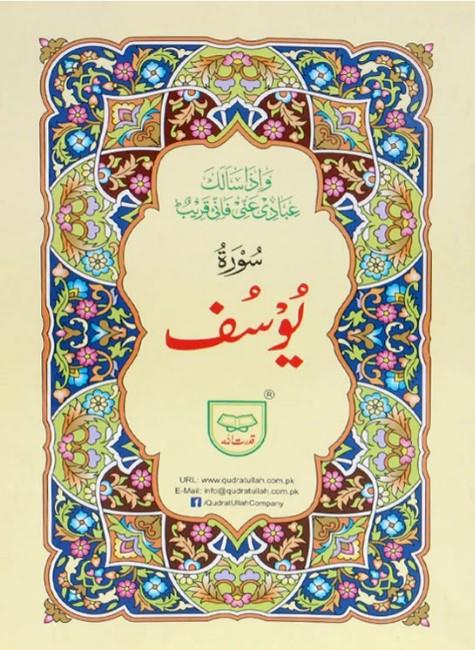 وَاِذَا سَاَلَكَ
عِبَادِیْ عَنِّیْ فَاِنِّیْ قَرِیْبٌ ؕ
سُوْرَةُ
یُوْسُف
®
قدرت اللہ
URL: www.qudratullah.com.pk
E-Mail: info@qudratullah.com.pk
f /QudratUllahCompany